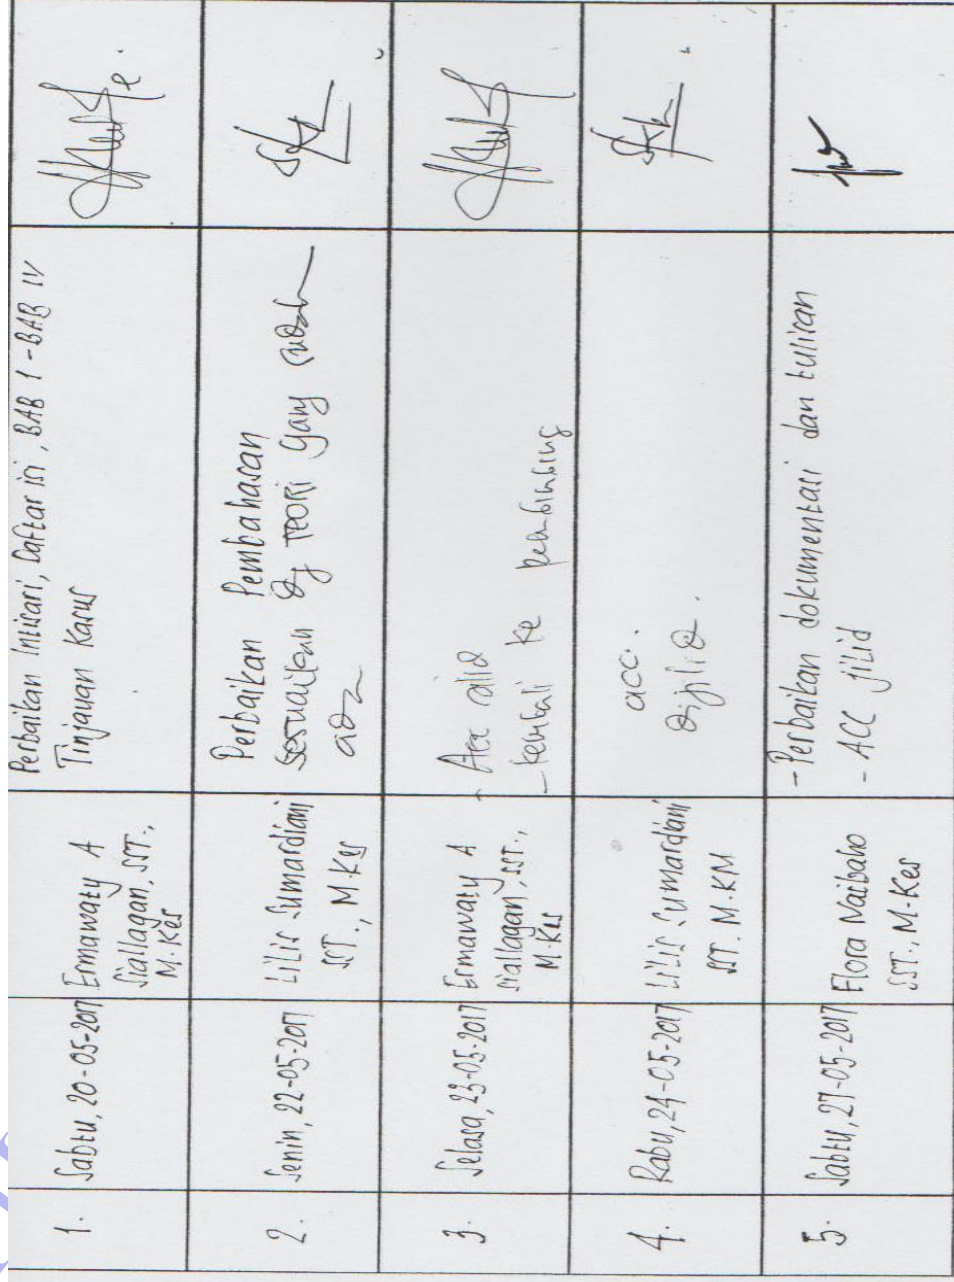 1.
Sabtu, 20-05-2017
Ermawaty A
Siallagan, SST.,
M.Kes
Perbaikan Intisari, Daftar isi, BAB 1 - BAB IV
Tinjauan Kasus
2.
Senin, 22-05-2017
Lilis Sumardiani
SST., M.Kes
Perbaikan Pembahasan
Sesuaikan dg TEORI yang sudah
ada
3.
Selasa, 23-05-2017
Ermawaty A
Siallagan, SST.,
M.Kes
- Acc
- kembali ke pembimbing
4.
Rabu, 24-05-2017
Lilis Sumardiani
SST. M.KM
acc.
dijilid.
5.
Sabtu, 27-05-2017
Flora Naibaho
SST., M-Kes
- Perbaikan dokumentasi dan tulisan
- ACC jilid